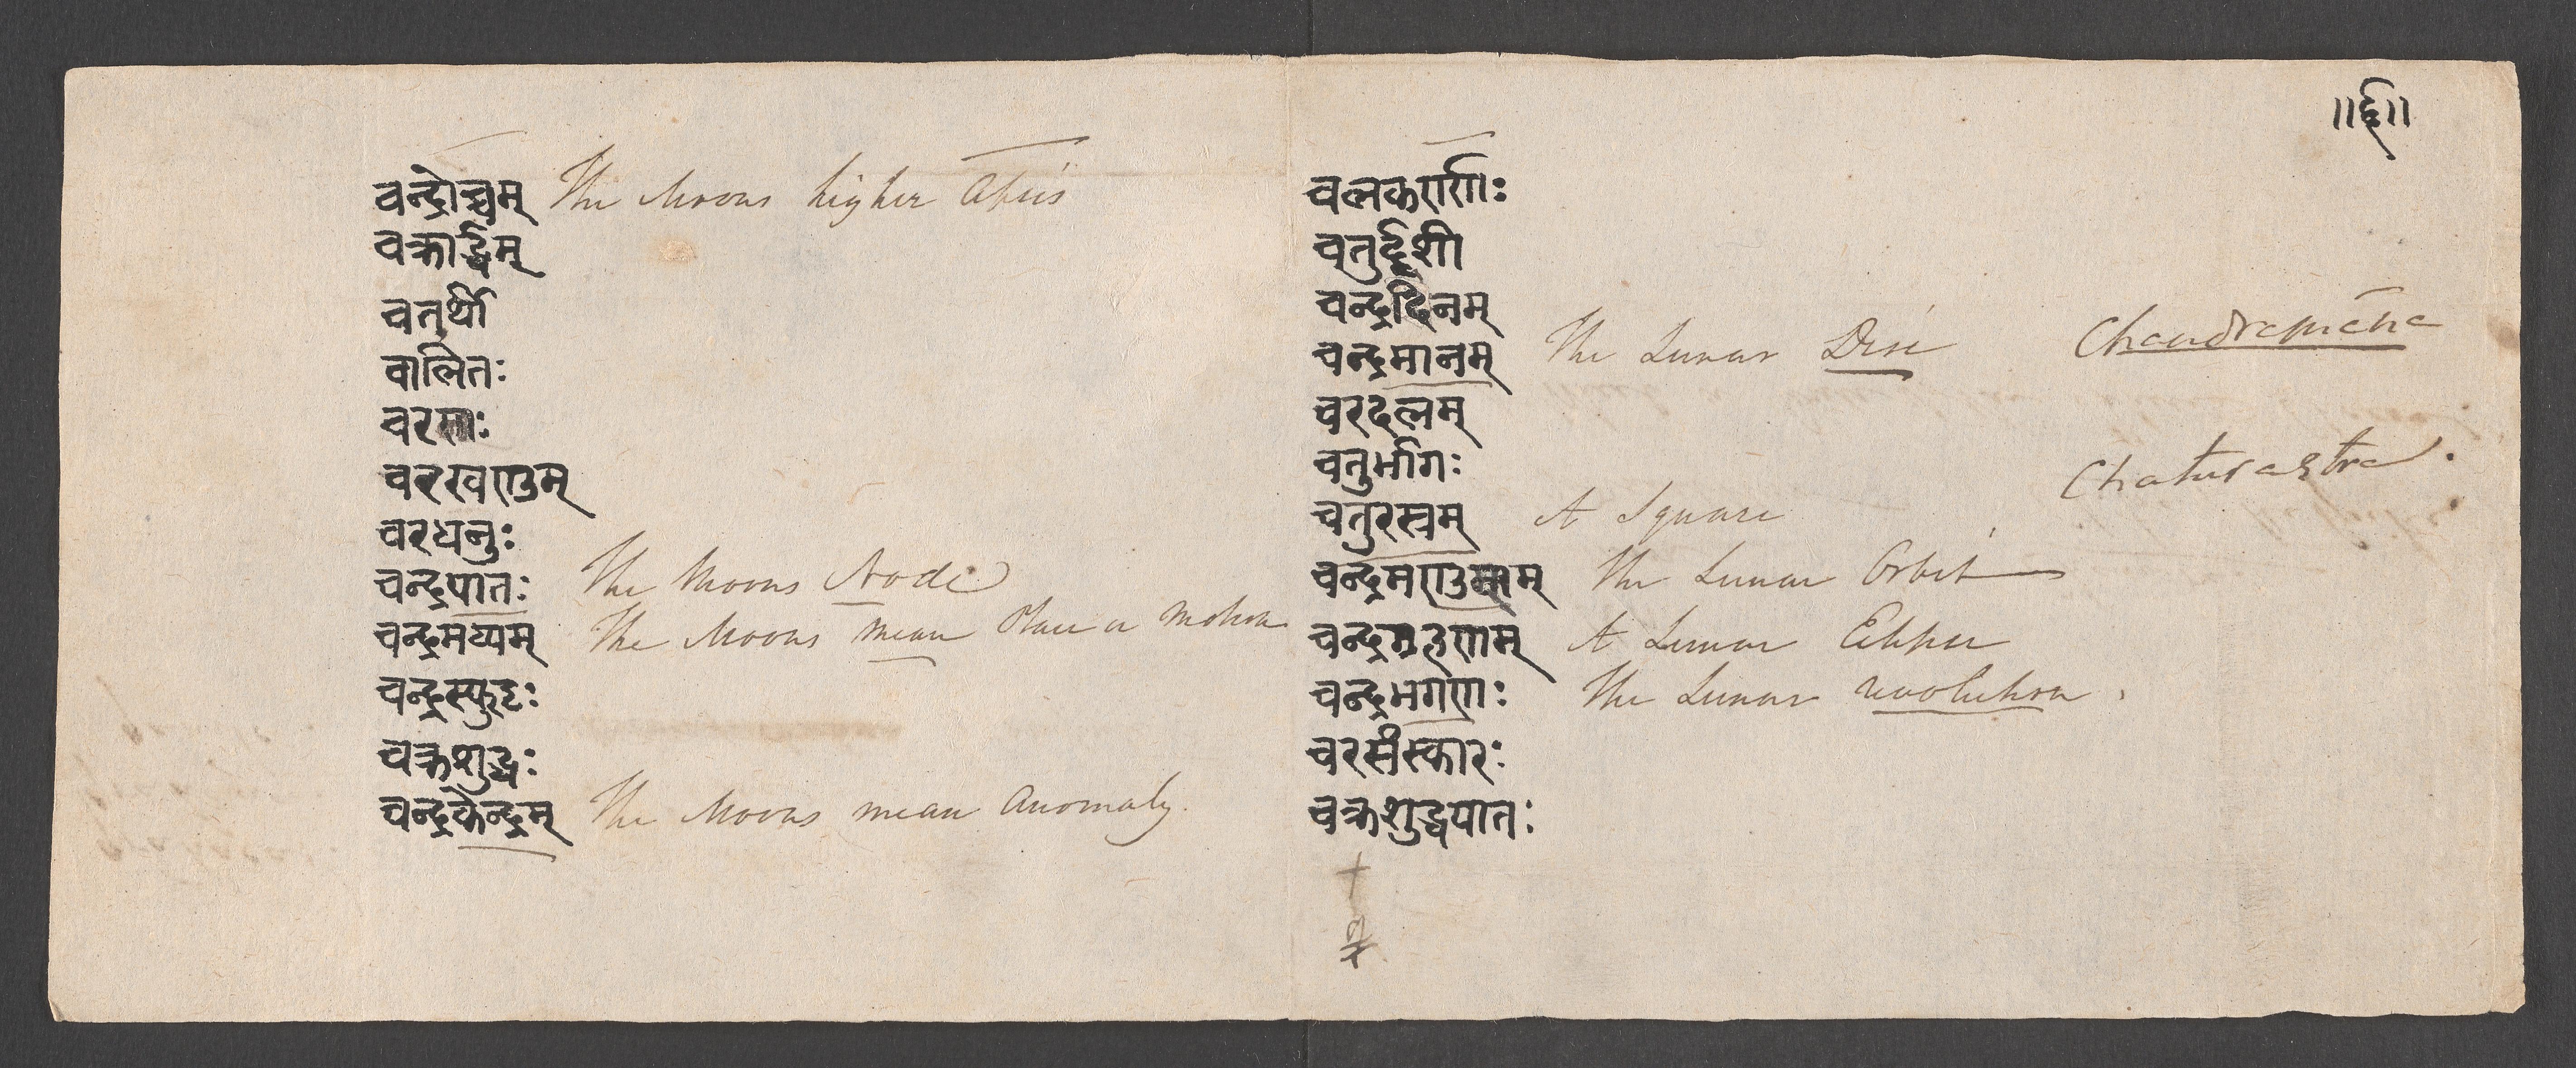 ॥६॥
चन्द्रोच्चम् The Moons higher Apsis
चक्रार्द्धम्
चतुर्थी
चालितः
चरसाः
चरखण्डम्
चरधनुः
चन्द्रपातः The Moons Node
चन्द्रमध्यम् The Moons mean Place or Motion
चन्द्रस्फुटः
चक्रशुद्धः
चन्द्रकेन्द्रम् The Moons mean Anomaly.
चलकर्णः
चतुर्द्दशी
चन्द्रदिनम्
चन्द्रमानम् The Lunar Disc Chandramāna
चरदलम्
चतुर्भागः
चतुरस्त्रम् A Square Chaturastra.
चन्द्रमण्डलम् The Lunar Orbit
चन्द्रग्रहणम् A Lunar Eclipse
चन्द्रभगणः The Lunar revolution.
चरसंस्कारः
चक्रशुद्धपातः